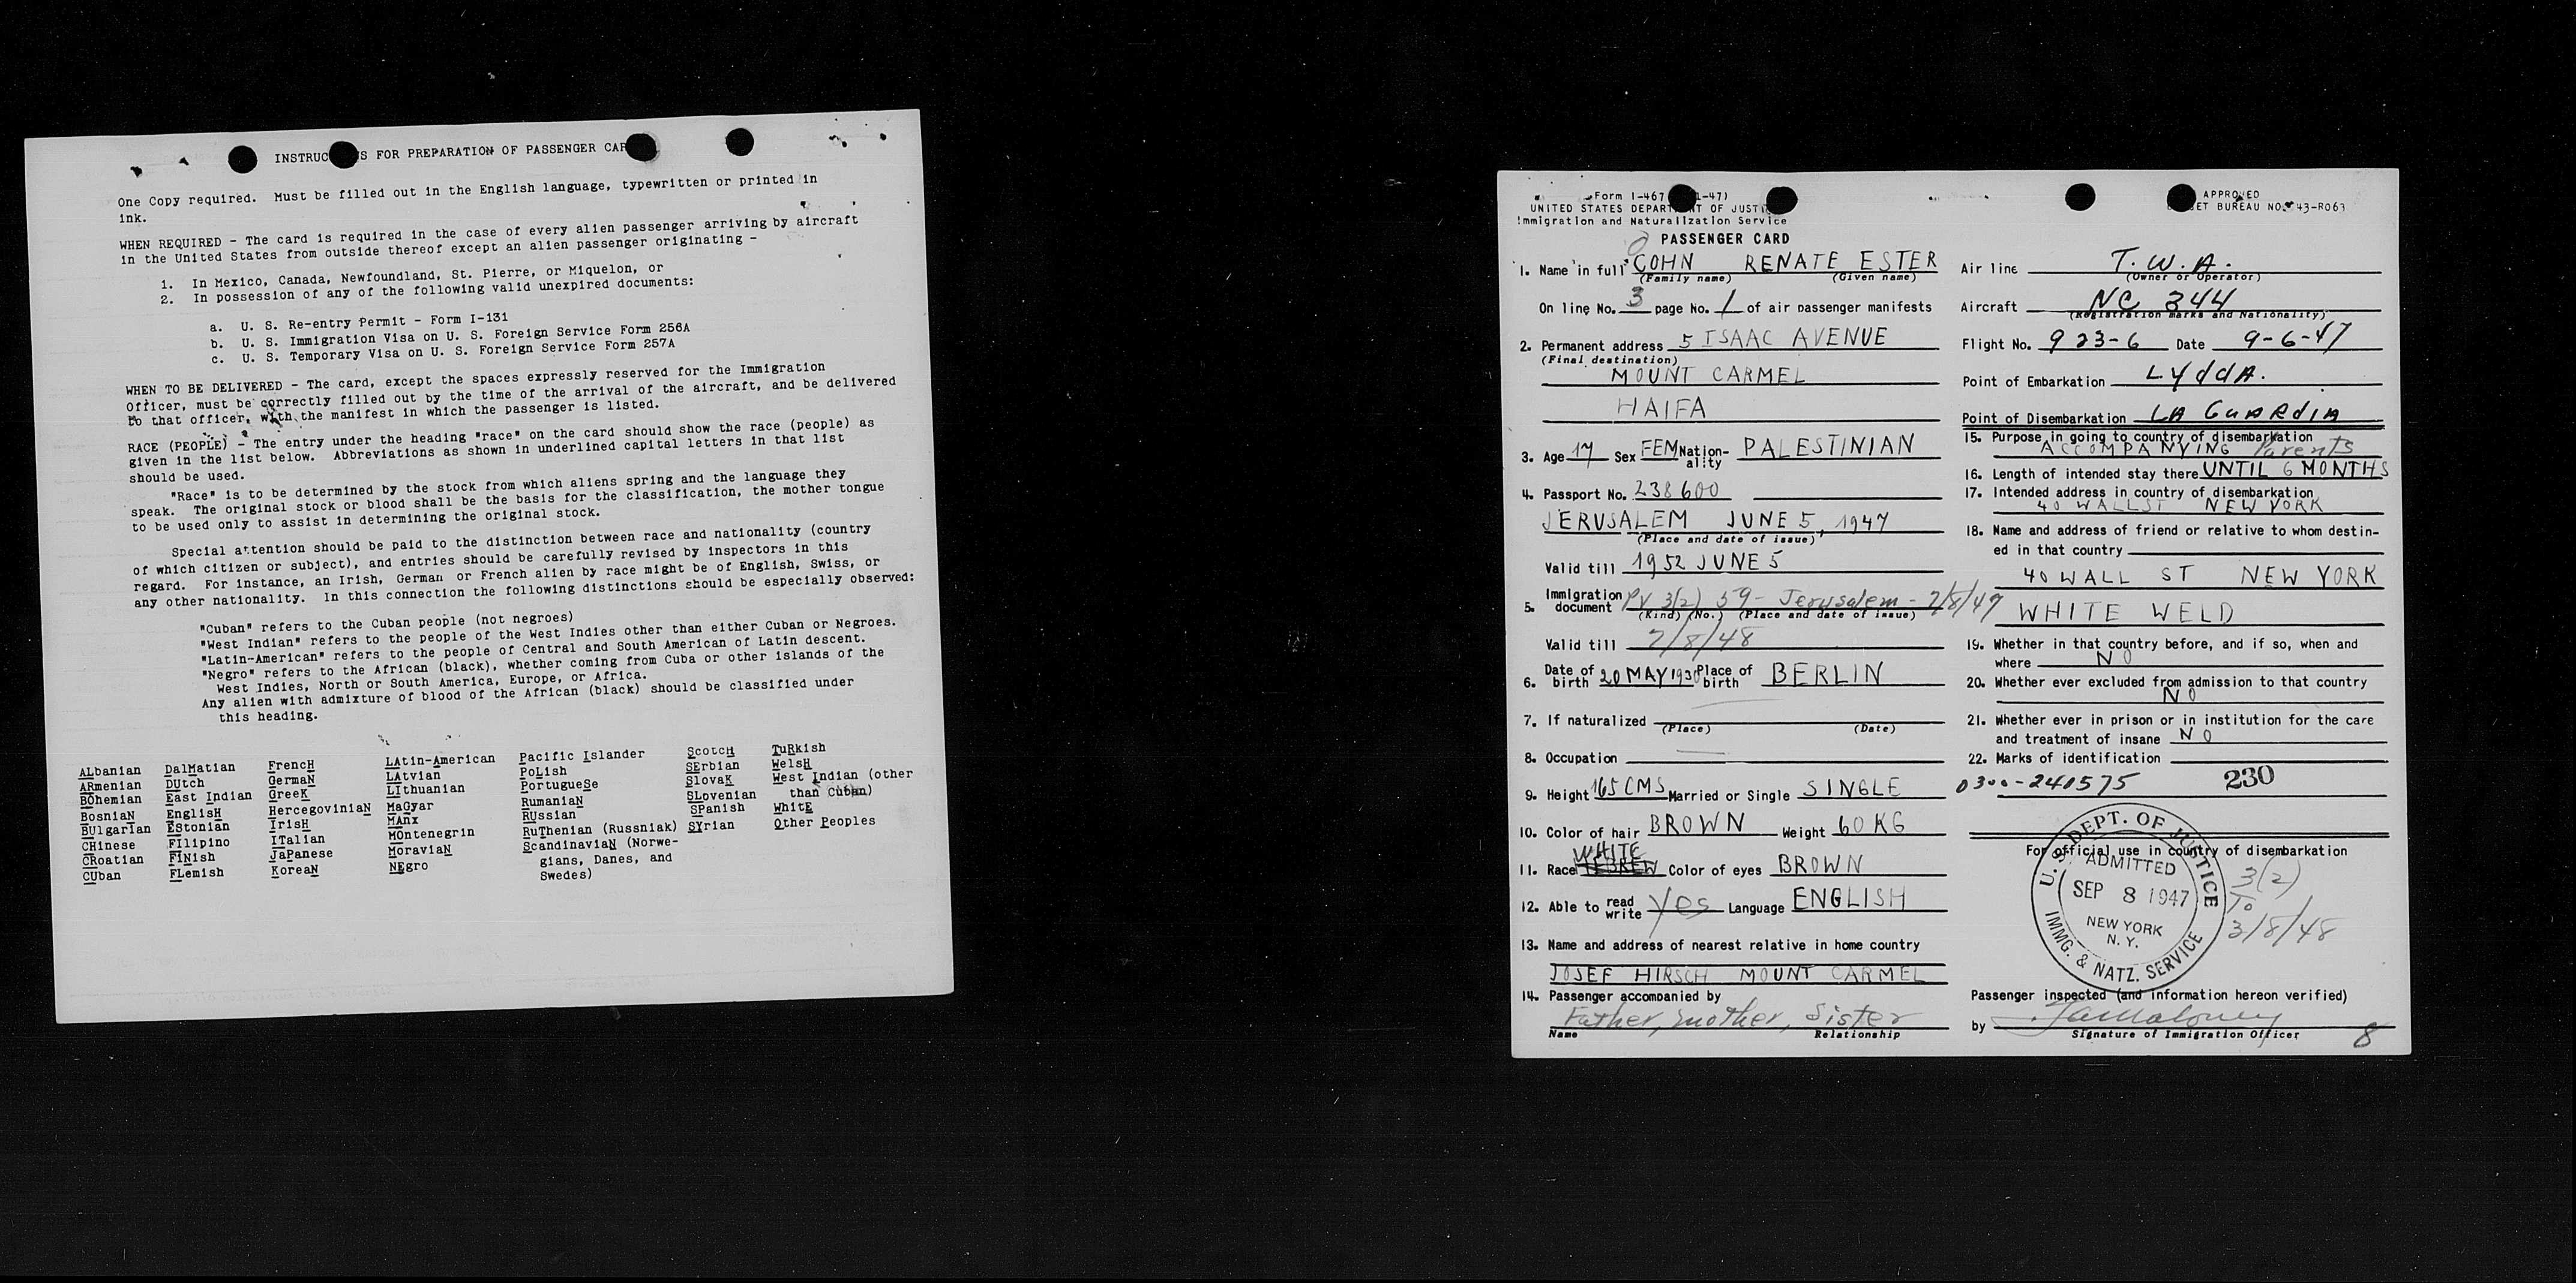 INSTRUC S FOR PREPARATION OF PASSENGER CAR
One Copy required. Must be filled out in the English language, typewritten or printed in
ink.
WHEN REQUIRED - The card is required in the case of every alien passenger arriving by aircraft
in the United States from outside thereof except an alien passenger originating -
1. In Mexico, Canada, Newfoundland, St. Pierre, or Miquelon, or
2. In possession of any of the following valid unexpired documents:
a. U. S. Re-entry Permit - Form I-131
b. U. S. Immigration Visa on U. S. Foreign Service Form 256A
c. U. S. Temporary Visa on U. S. Foreign Service Form 257A
WHEN TO BE DELIVERED - The card, except the spaces expressly reserved for the Immigration
Officer, must be correctly filled out by the time of the arrival of the aircraft, and be delivered
to that officer, with the manifest in which the passenger is listed.
RACE (PEOPLE) - The entry under the heading "race" on the card should show the race (people) as
given in the list below. Abbreviations as shown in underlined capital letters in that list
should be used.
"Race" is to be determined by the stock from which aliens spring and the language they
speak. The original stock or blood shall be the basis for the classification, the mother tongue
to be used only to assist in determining the original stock.
Special attention should be paid to the distinction between race and nationality (country
of which citizen or subject), and entries should be carefully revised by inspectors in this
regard. For instance, an Irish, German or French alien by race might be of English, Swiss, or
any other nationality. In this connection the following distinctions should be especially observed:
"Cuban" refers to the Cuban people (not negroes)
"West Indian" refers to the people of the West Indies other than either Cuban or Negroes.
"Latin-American" refers to the people of Central and South American of Latin descent.
"Negro" refers to the African (black), whether coming from Cuba or other islands of the
West Indies, North or South America, Europe, or Africa.
Any alien with admixture of blood of the African (black) should be classified under
this heading.
ALbanian
ARmenian
BOhemian
BosniaN
BUlgarIan
CHinese
CRoatian
CUban
DalMatian
DUtch
East Indian
EnglisH
EStonian
FIlipino
FiNish
FLemish
FrencH
GermaN
GreeK
HercegoviniaN
IrisH
ITalian
JaPanese
KoreaN
LAtin-American
LAtvian
LIthuanian
MaGyar
MAnx
MOntenegrin
MoraviaN
NEgro
Pacific Islander
PoLish
PortugueSe
RumaniaN
RUssian
RuThenian (Russniak)
ScandinaviaN (Norwe-
gians, Danes, and
Swedes)
ScotcH
SErbian
SlovaK
SLovenian
SPanish
SYrian
TuRkish
WelsH
West Indian (other
than Cuban)
WhitE
Other Peoples
Form I-467 1-47)
UNITED STATES DEPART NT OF JUSTI
Immigration and Naturalization Service
APPROVED
ET BUREAU NO. 43-R063
PASSENGER CARD
1. Name in full COHN RENATE ESTER
(Family name) (Given name)
On line No. 3 page No. 1 of air passenger manifests
2. Permanent address 5 ISAAC AVENUE
(Final destination)
MOUNT CARMEL
HAIFA
3. Age 17 Sex FEM Nation-ality PALESTINIAN
4. Passport No. 238600
JERUSALEM JUNE 5, 1947
(Place and date of issue)
Valid till 1952 JUNE 5
5. Immigration document PV 3(2) 59 - Jerusalem - 7/8/47
(Kind) (No.) (Place and date of issue)
Valid till 7/8/48
6. Date of birth 20 MAY 1930 Place of birth BERLIN
7. If naturalized
(Place) (Date)
8. Occupation
9. Height 165 CMS Married or Single SINGLE
10. Color of hair BROWN Weight 60 KG
WHITE
11. Race HEBREW Color of eyes BROWN
12. Able to read write Yes Language ENGLISH
13. Name and address of nearest relative in home country
JOSEF HIRSCH MOUNT CARMEL
14. Passenger accompanied by
Father, mother, sister
Name Relationship
Air line T.W.A.
(Owner or Operator)
Aircraft NC 344
(Registration marks and Nationality)
Flight No. 923-6 Date 9-6-47
Point of Embarkation LyddA.
Point of Disembarkation LA GuARdiA
15. Purpose in going to country of disembarkation
ACCOMPANYING Parents
16. Length of intended stay there UNTIL 6 MONTHS
17. Intended address in country of disembarkation
40 WALL ST NEW YORK
18. Name and address of friend or relative to whom destin-
ed in that country
40 WALL ST NEW YORK
WHITE WELD
19. Whether in that country before, and if so, when and
where NO
20. Whether ever excluded from admission to that country
NO
21. Whether ever in prison or in institution for the care
and treatment of insane NO
22. Marks of identification
0300-240575 230
For official use in country of disembarkation
U. S. DEPT. OF JUSTICE
ADMITTED
SEP 8 1947
NEW YORK
N. Y.
IMMG. & NATZ. SERVICE
3(2)
To
3/8/48
Passenger inspected (and information hereon verified)
by
Signature of Immigration Officer
8